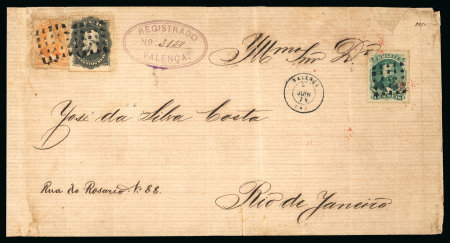 REGISTRADO
VALENÇA
Illmo Snr Dr
VALENÇA
JUIN
José da Silva Costa
Rua do Rosario N. 88.
Rio de Janeiro